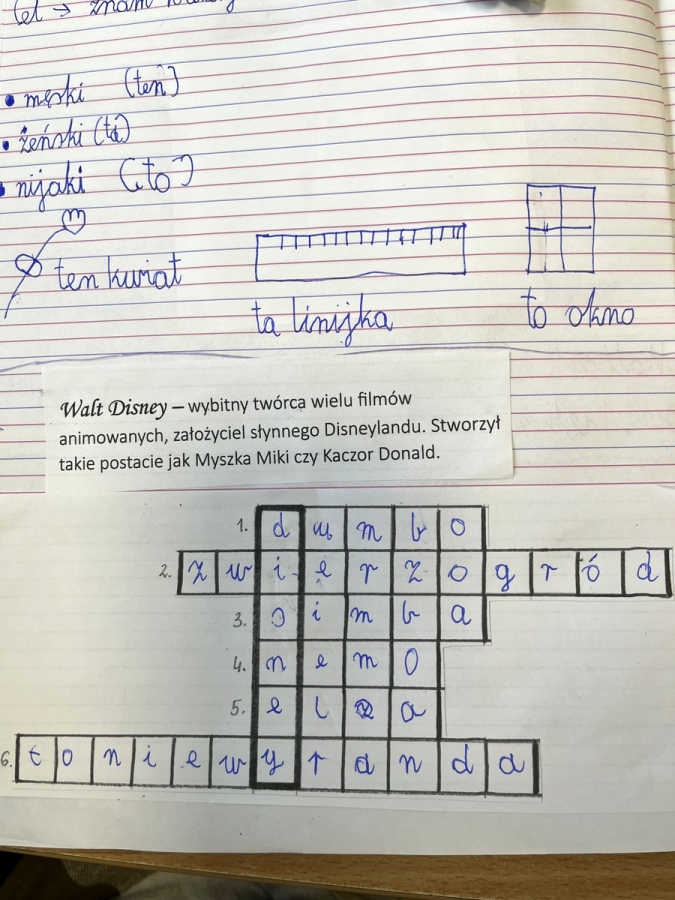 Cel → znam
• męski (ten)
• żeński (ta)
• nijaki (to)
ten kwiat
ta linijka
to okno
Walt Disney – wybitny twórca wielu filmów
animowanych, założyciel słynnego Disneylandu. Stworzył
takie postacie jak Myszka Miki czy Kaczor Donald.
1. dumbo
2. zwierzogród
3. simba
4. nemo
5. elsa
6. toniewyranda